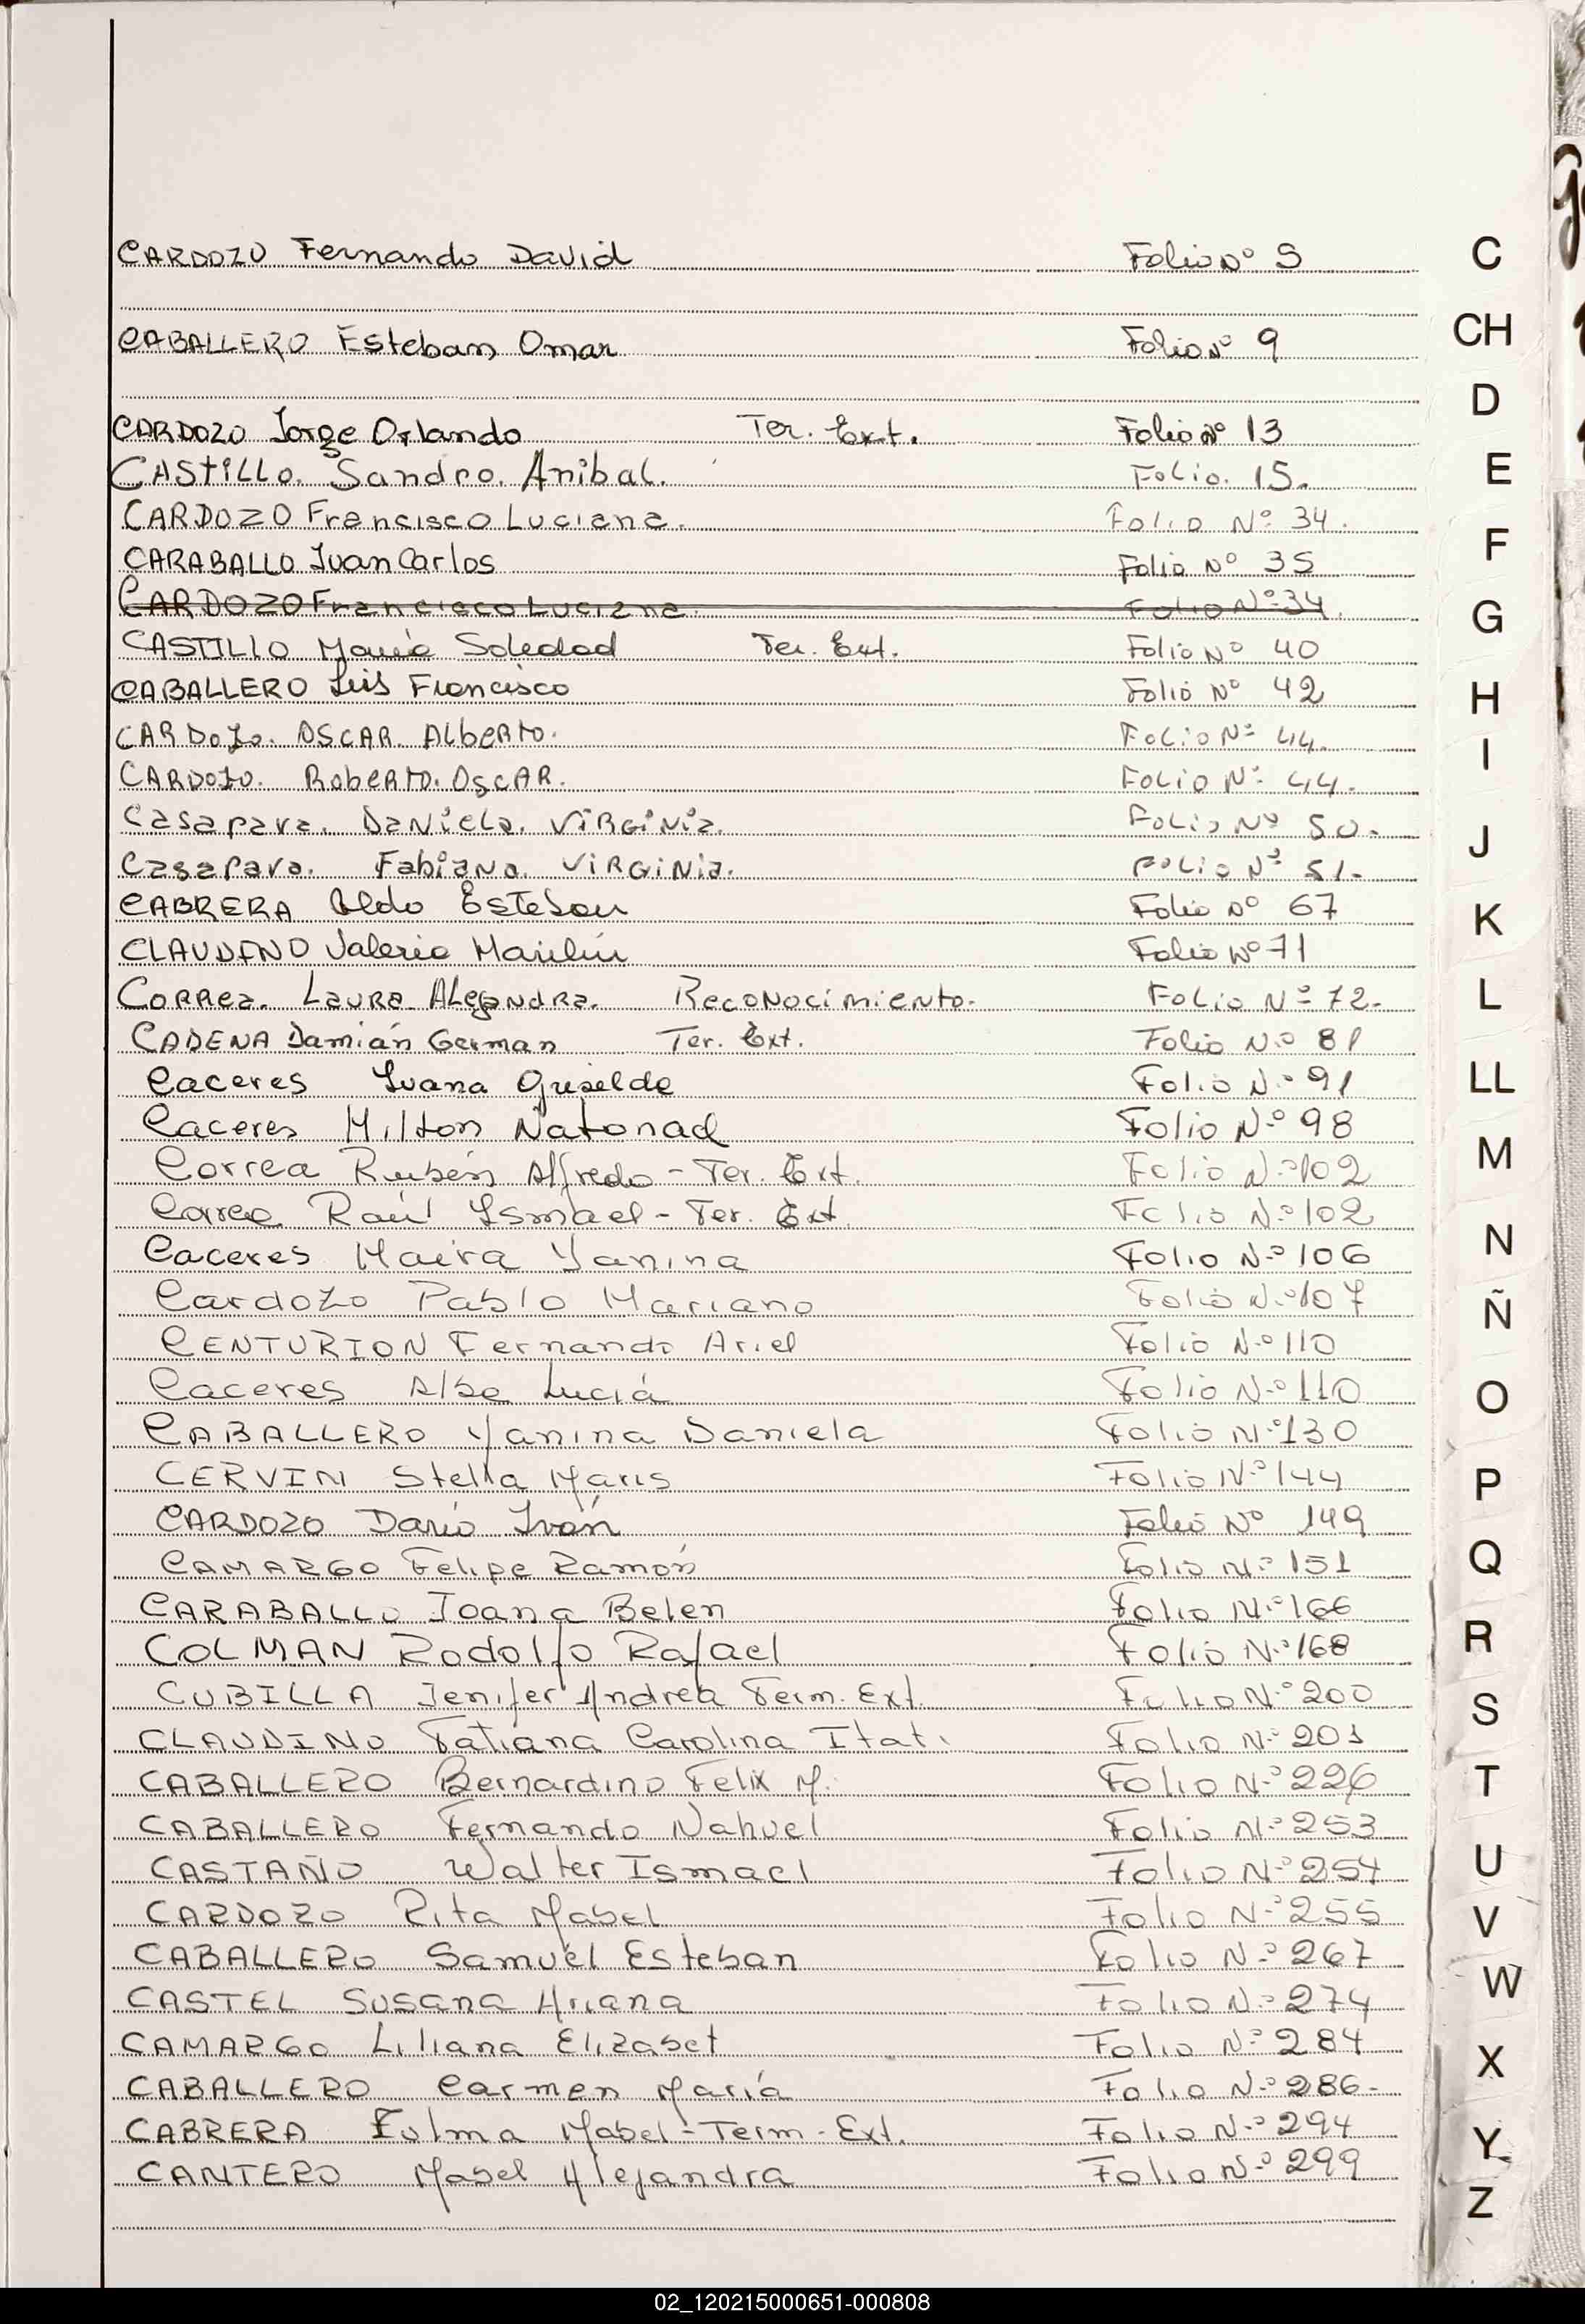 CARDOZO Fernando David Folio Nº 5
C
CH
CABALLERO Esteban Omar Folio Nº 9
D
CARDOZO Jorge Orlando Ter. Ext. Folio Nº 13
CASTILLO. Sandro. Anibal. Folio. 15.
E
CARDOZO Francisco Luciana. Folio Nº 34.
CARABALLO Juan Carlos Folio Nº 35
F
CARDOZO Francisco Luciana. Folio Nº 34.
G
CASTILLO María Soledad Ter. Ext. Folio Nº 40
CABALLERO Luis Francisco Folio Nº 42
H
CARDOZO. OSCAR. Alberto. Folio Nº 44.
I
CARDOZO. Roberto. OSCAR. Folio Nº 44.
Casapava. Daniela. Virginia. Folio Nº 50.
J
Casapava. Fabiana. Virginia. Folio Nº 51.
CABRERA Aldo Esteban Folio Nº 67
K
CLAUDINO Valeria Marilin Folio Nº 71
Correa. Laura Alejandra. Reconocimiento. Folio Nº 72.
L
CADENA Damián German Ter. Ext. Folio N.º 81
Caceres Juana Griselda Folio N.º 91
LL
Caceres Milton Natonad Folio N.º 98
M
Correa Rubén Alfredo - Ter. Ext. Folio N.º 102
Correa Raúl Ismael - Ter. Ext. Folio N.º 102
N
Caceres Maira Yanina Folio N.º 106
Cardozo Pablo Mariano Folio N.º 107
Ñ
CENTURION Fernando Ariel Folio N.º 110
Caceres Alba Lucía Folio N.º 110
O
CABALLERO Yanina Daniela Folio N.º 130
CERVIN Stella Maris Folio N.º 144
P
CARDOZO Darío Iván Folio Nº 149
CAMARGO Felipe Ramón Folio N.º 151
Q
CARABALLO Joana Belen Folio N.º 166
R
COLMAN Rodolfo Rafael Folio N.º 168
CUBILLA Jenifer Andrea Term. Ext. Folio N.º 200
S
CLAUDINO Tatiana Carolina Itati. Folio N.º 201
CABALLERO Bernardino Felix M. Folio N.º 226
T
CABALLERO Fernando Nahuel Folio N.º 253
CASTAÑO Walter Ismael Folio N.º 254
U
CARDOZO Rita Mabel Folio N.º 255
V
CABALLERO Samuel Esteban Folio N.º 267
W
CASTEL Susana Ariana Folio N.º 274
CAMARGO Liliana Elizabet Folio N.º 284
X
CABALLERO Carmen María Folio N.º 286.
CABRERA Zulma Mabel - Term. Ext. Folio N.º 294
Y
CANTERO Mabel Alejandra Folio N.º 299
Z
02_120215000651-000808